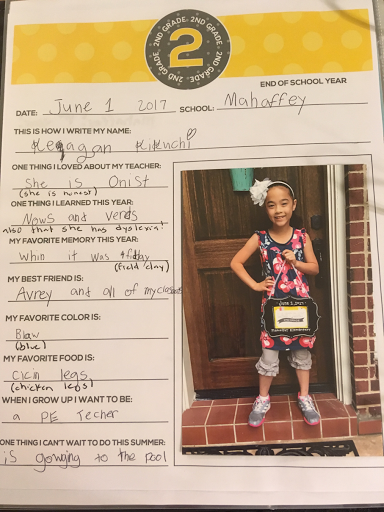 2ND GRADE. 2ND GRADE. 2ND GRADE. 2ND GRADE.
2
END OF SCHOOL YEAR
DATE: June 1 2017 SCHOOL: Mahaffey
THIS IS HOW I WRITE MY NAME:
Keagan Kikuchi
ONE THING I LOVED ABOUT MY TEACHER:
She is Onist
(she is honest)
ONE THING I LEARNED THIS YEAR:
Nows and verds
also that she has dyslexia!
MY FAVORITE MEMORY THIS YEAR:
Whin it was
(field day)
MY BEST FRIEND IS:
Avrey and all of my
MY FAVORITE COLOR IS:
Blaw
(blue)
MY FAVORITE FOOD IS:
Cicin legs
(chicken legs)
WHEN I GROW UP I WANT TO BE:
a PE Techer
ONE THING I CAN'T WAIT TO DO THIS SUMMER:
is gowging to the pool
June 1, 2017